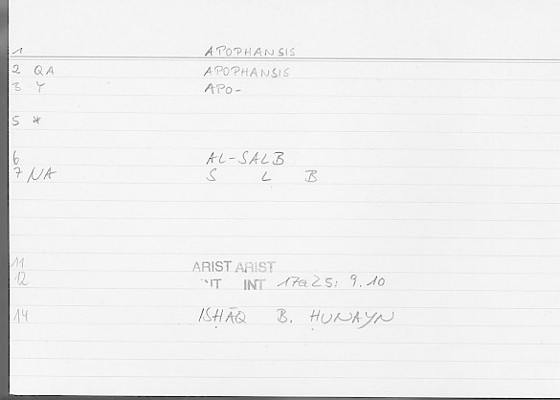 1 APOPHANSIS
2 QA APOPHANSIS
3 Y APO-
5 *
6 AL-SALB
7 NA S L B
11 ARIST ARIST
12 INT 17a25; 9.10
14 ISḤĀQ B. ḤUNAYN